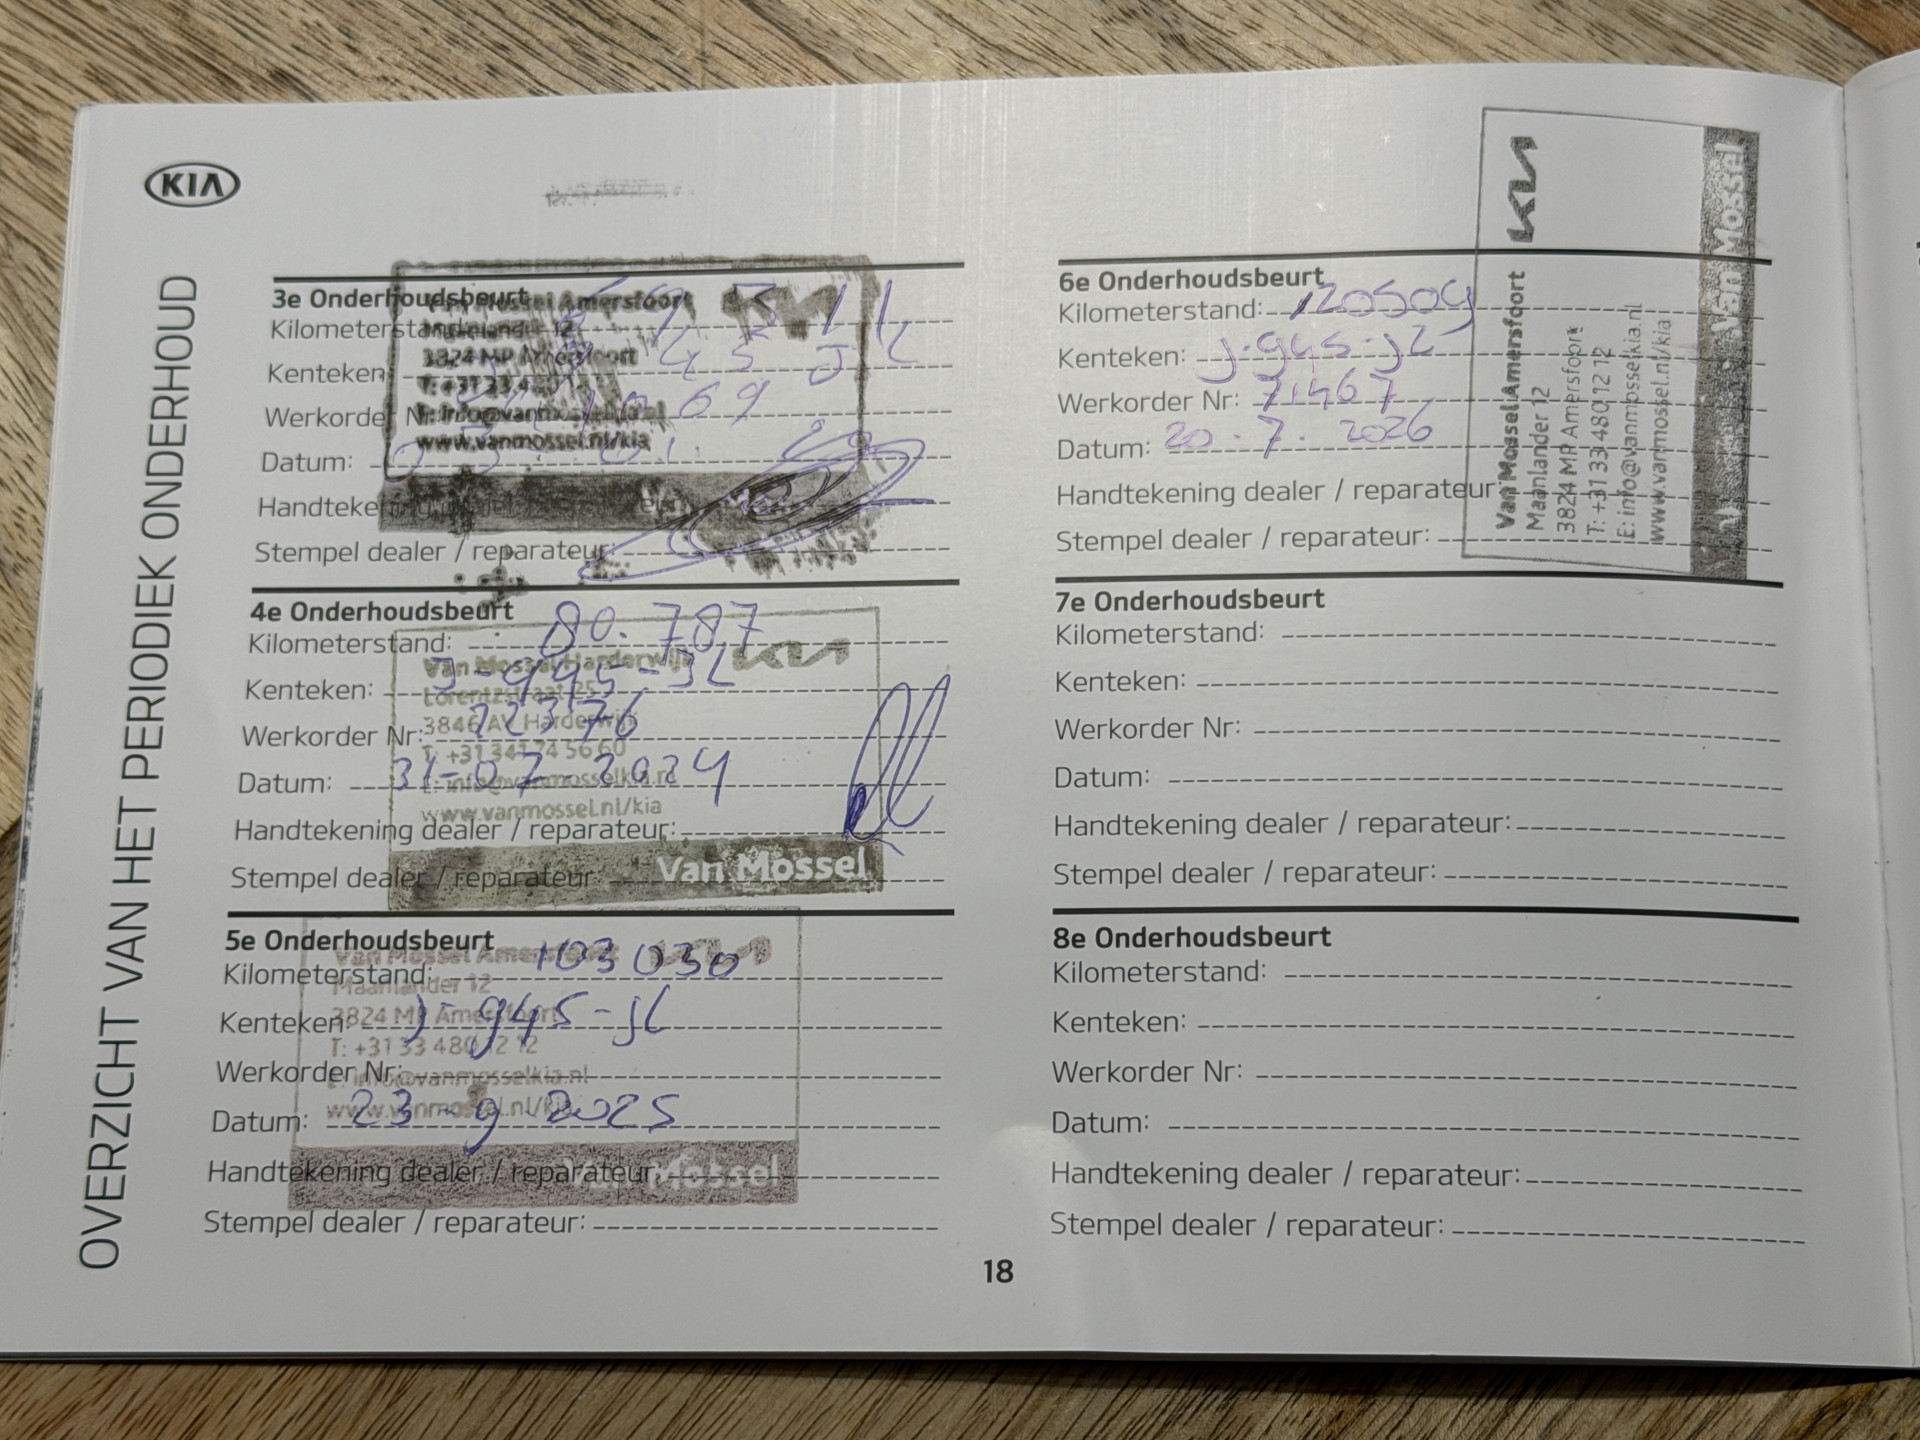 KIA
OVERZICHT VAN HET PERIODIEK ONDERHOUD
3e Onderhoudsbeurt
Kilometerstand:
Kenteken: 45 JL
Werkorder Nr: 69
Datum:
Handtekening
Stempel dealer / reparateur:
Mossel Amersfoort KIA
Maanlander 12
3824 MP Amersfoort
T: +31 33 480
www.vanmossel.nl/kia
4e Onderhoudsbeurt
Kilometerstand: 80.787
Kenteken: J-945-JL
Werkorder Nr: 22376
Datum: 31-07-2024
Handtekening dealer / reparateur:
Stempel dealer / reparateur:
Van Mossel Harderwijk KIA
Lorentzstraat 25
3846 AV Harderwijk
T: +31 341 74 56 60
E: info@vanmosselkia.nl
www.vanmossel.nl/kia
Van Mossel
5e Onderhoudsbeurt
Kilometerstand: 103030
Kenteken: J-945-JL
Werkorder Nr:
Datum: 23-9 2025
Handtekening dealer / reparateur:
Stempel dealer / reparateur:
Van Mossel Amersfoort KIA
Maanlander 12
3824 MP Amersfoort
T: +31 33 480 12 12
E: info@vanmosselkia.nl
www.vanmossel.nl/kia
Van Mossel
6e Onderhoudsbeurt
Kilometerstand: 120509
Kenteken: J-945-JL
Werkorder Nr: 71467
Datum: 20.7.2026
Handtekening dealer / reparateur:
Stempel dealer / reparateur:
KIA
Van Mossel Amersfoort
Maanlander 12
3824 MP Amersfoort
T: +31 33 480 12 12
E: info@vanmosselkia.nl
www.vanmossel.nl/kia
Van Mossel
7e Onderhoudsbeurt
Kilometerstand:
Kenteken:
Werkorder Nr:
Datum:
Handtekening dealer / reparateur:
Stempel dealer / reparateur:
8e Onderhoudsbeurt
Kilometerstand:
Kenteken:
Werkorder Nr:
Datum:
Handtekening dealer / reparateur:
Stempel dealer / reparateur:
18